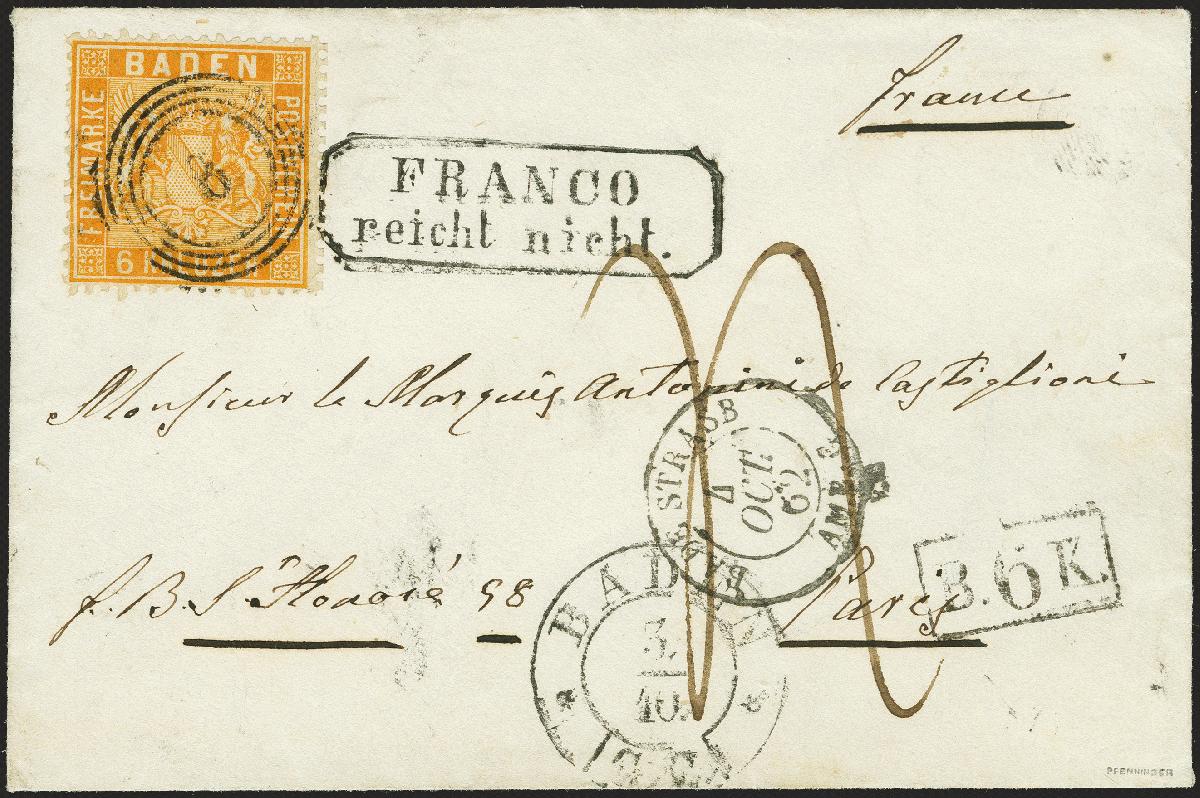 France
BADEN
FREIMARKE
POSTVEREIN
6
8
FRANCO
reicht nicht.
Monsieur le Marquis Antonini de Castiglioni
f. B. St Honoré 98 Paris
BADE STRASB
4
OCT
62
AMB
B. 6 K.
BADEN
3.
10.
PFENNINGER